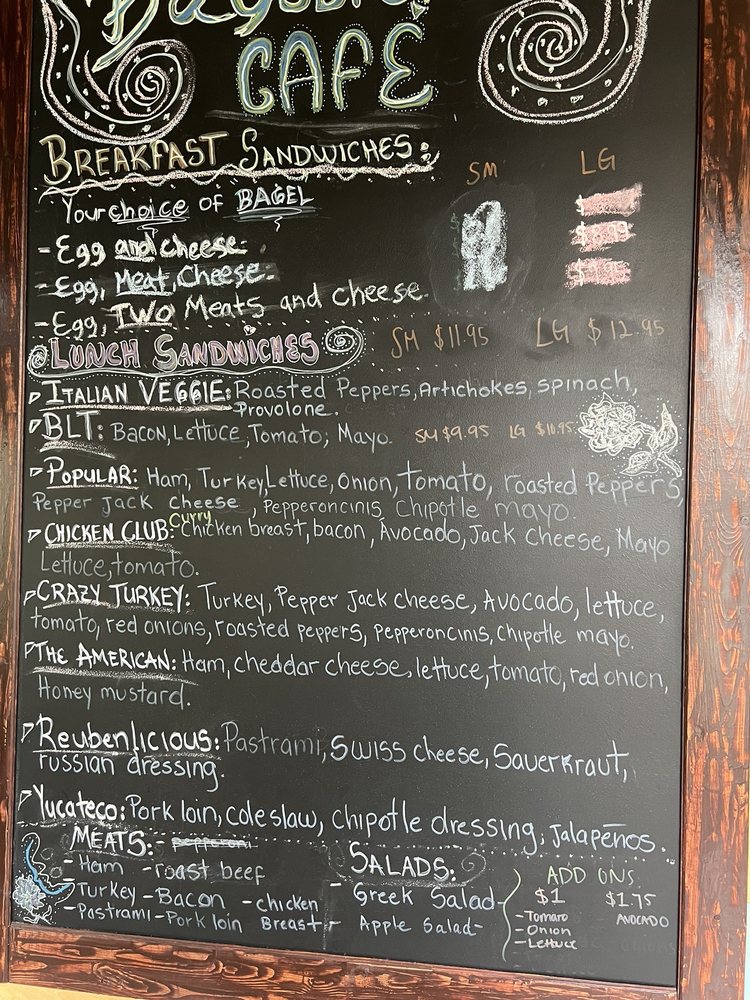 CAFÉ
BREAKFAST SANDWICHES:
SM LG
Your choice of BAGEL
- Egg and cheese.
- Egg, Meat, Cheese.
- Egg, TWO Meats and cheese.
LUNCH SANDWICHES SM $11.95 LG $12.95
ITALIAN VEGGIE: Roasted Peppers, Artichokes, spinach,
provolone.
BLT: Bacon, Lettuce, Tomato, Mayo. SM $9.95 LG $10.95
POPULAR: Ham, Turkey, Lettuce, onion, tomato, roasted Peppers,
Pepper Jack cheese, Pepperoncinis, Chipotle mayo
Curry
CHICKEN CLUB: Chicken breast, bacon, Avocado, Jack Cheese, Mayo
Lettuce, tomato.
CRAZY TURKEY: Turkey, Pepper Jack cheese, Avocado, lettuce,
tomato, red onions, roasted peppers, Pepperoncinis, Chipotle mayo.
THE AMERICAN: Ham, cheddar cheese, lettuce, tomato, red onion,
Honey mustard.
Reubenlicious: Pastrami, Swiss cheese, Sauerkraut,
russian dressing.
Yucateco: Pork loin, coleslaw, chipotle dressing, jalapeños.
MEATS: - pepperoni
- Ham - roast beef
- Turkey - Bacon - chicken
- Pastrami - Pork loin Breast
SALADS:
- Greek Salad -
- Apple Salad -
ADD ONS
$1 $1.75
- Tomaro AVOCADO
- Onion
- Lettuce